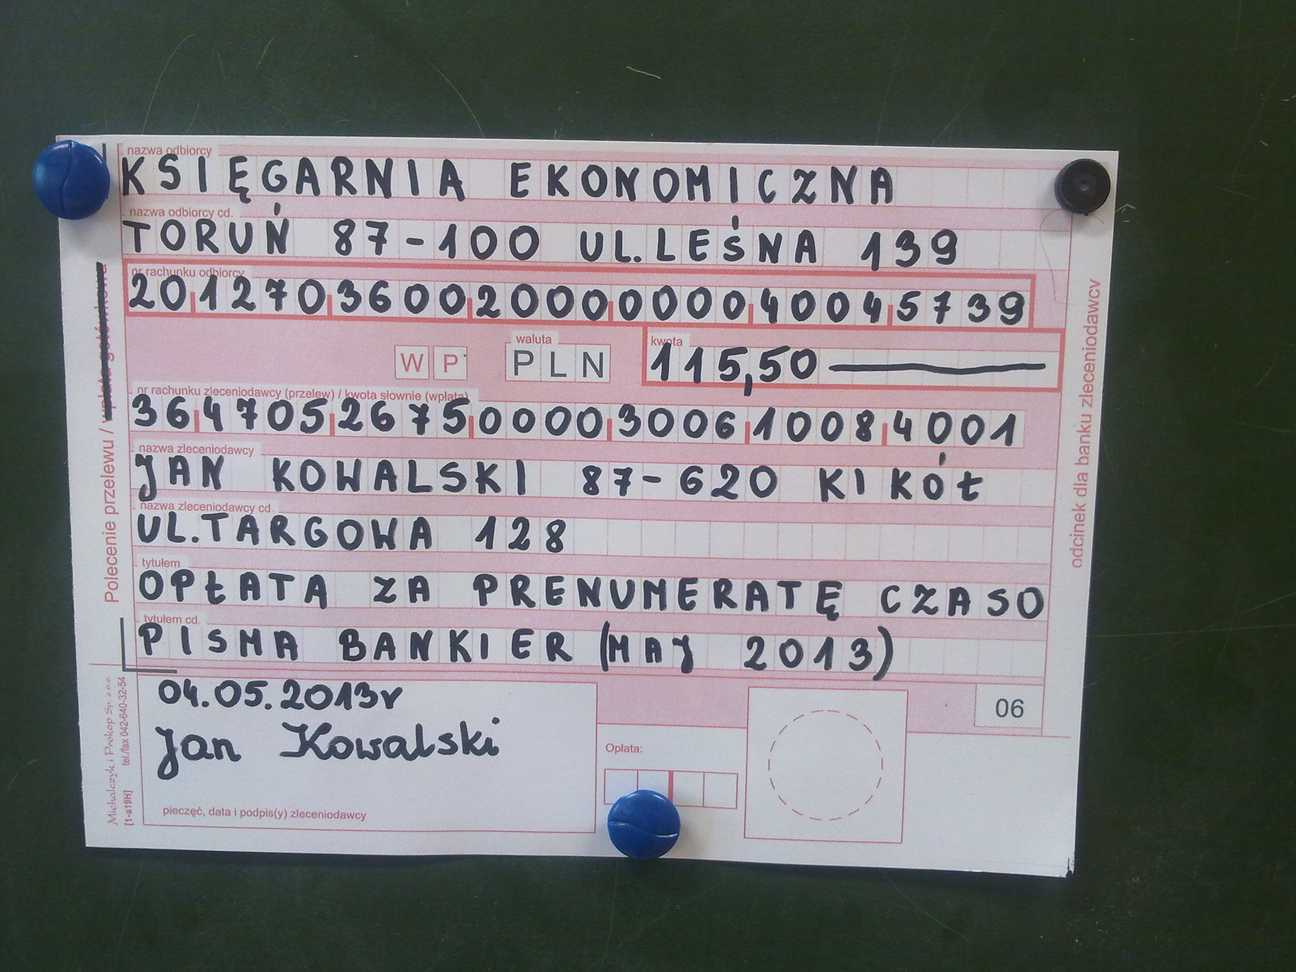 nazwa odbiorcy
KSIĘGARNIA EKONOMICZNA
nazwa odbiorcy cd.
TORUŃ 87-100 UL.LEŚNA 139
nr rachunku odbiorcy
20127036002000000040045739
waluta
kwota
W P
PLN
115,50
nr rachunku zleceniodawcy (przelew) / kwota słownie (wpłata)
36470526750000300610084001
nazwa zleceniodawcy
JAN KOWALSKI 87-620 KIKÓŁ
nazwa zleceniodawcy cd.
UL.TARGOWA 128
tytułem
OPŁATA ZA PRENUMERATĘ CZASO
tytułem cd.
PISMA BANKIER (MAJ 2013)
04.05.2013r
Jan Kowalski
06
Opłata:
pieczęć, data i podpis(y) zleceniodawcy
Polecenie przelewu / wpłata gotówkowa
odcinek dla banku zleceniodawcy
Michalczyk i Prokop Sp. z o.o.
tel./fax 042-640-32-54